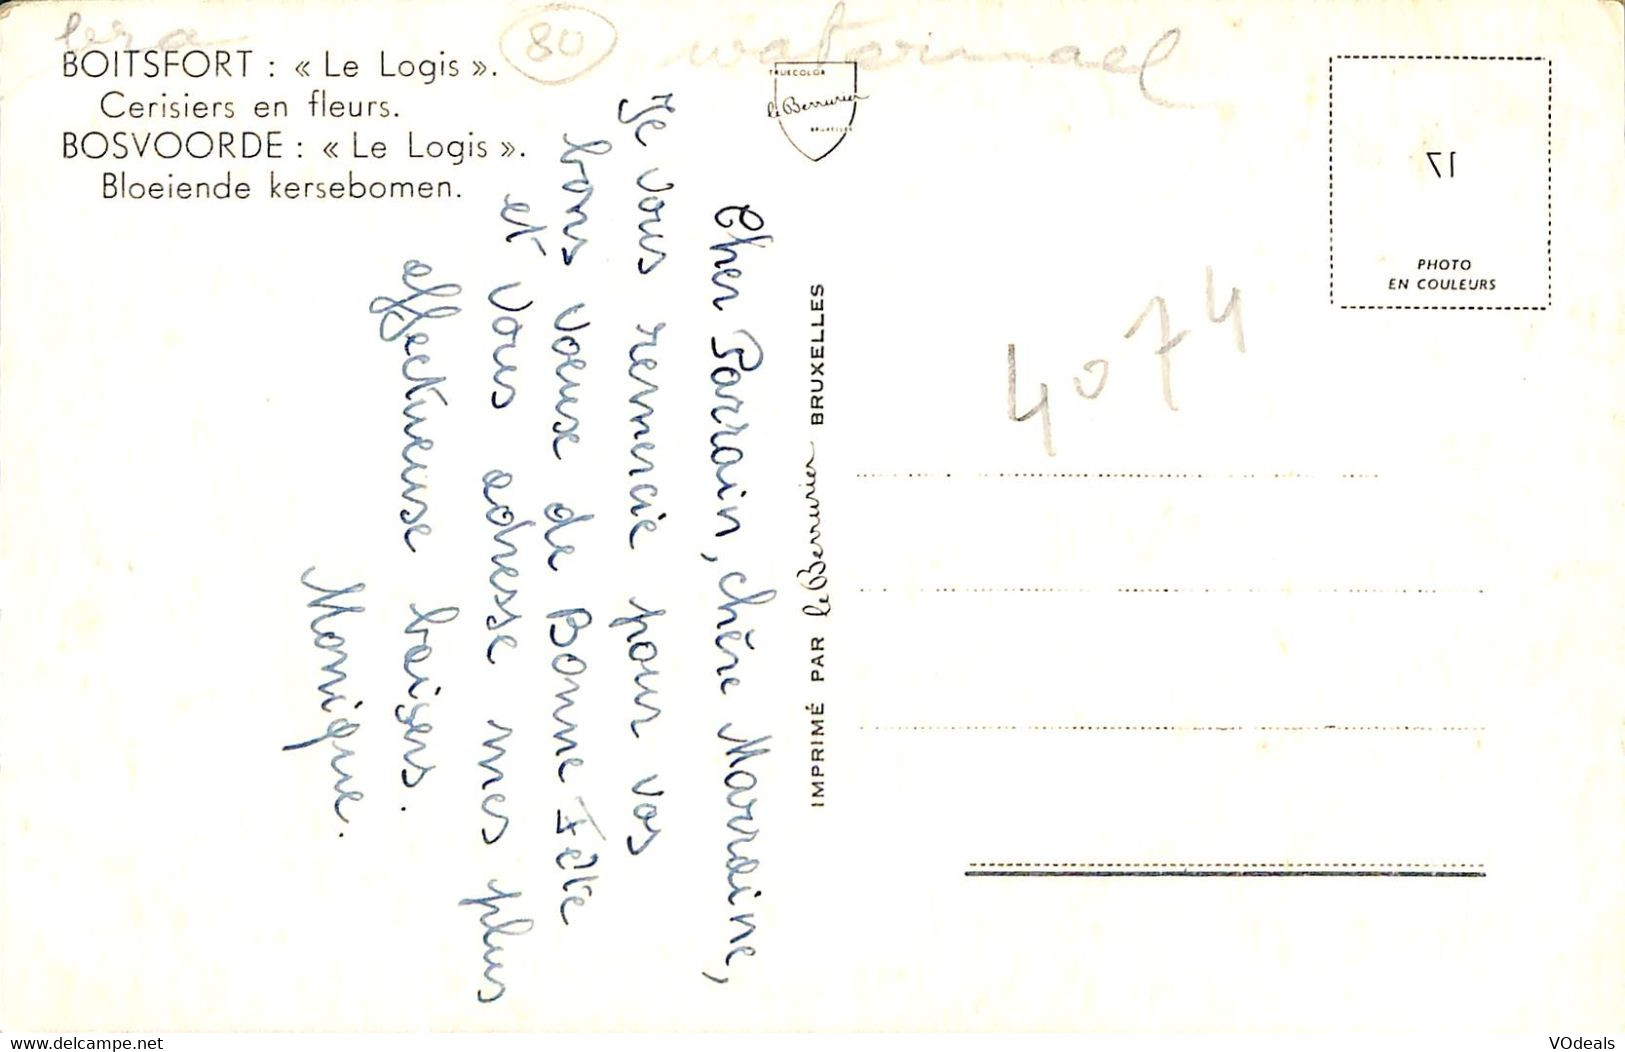 80
watermael
BOITSFORT : « Le Logis ».
Cerisiers en fleurs.
BOSVOORDE : « Le Logis ».
Bloeiende kersebomen.
TRUECOLOR
le Berrurier
BRUXELLES
17
PHOTO
EN COULEURS
4074
Cher Parrain, chère Marraine,
Je vous remercie pour vos
bons voeux de Bonne Fête
et vous adresse mes plus
affectueuse baisers.
Monique.
IMPRIMÉ PAR le Berrurier BRUXELLES
http://www.delcampe.net
VOdeals